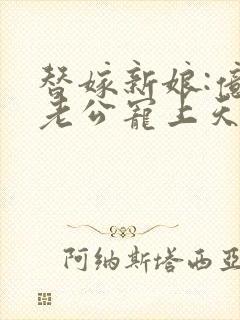 替嫁新娘:
老公宠上天
阿纳斯塔西亚